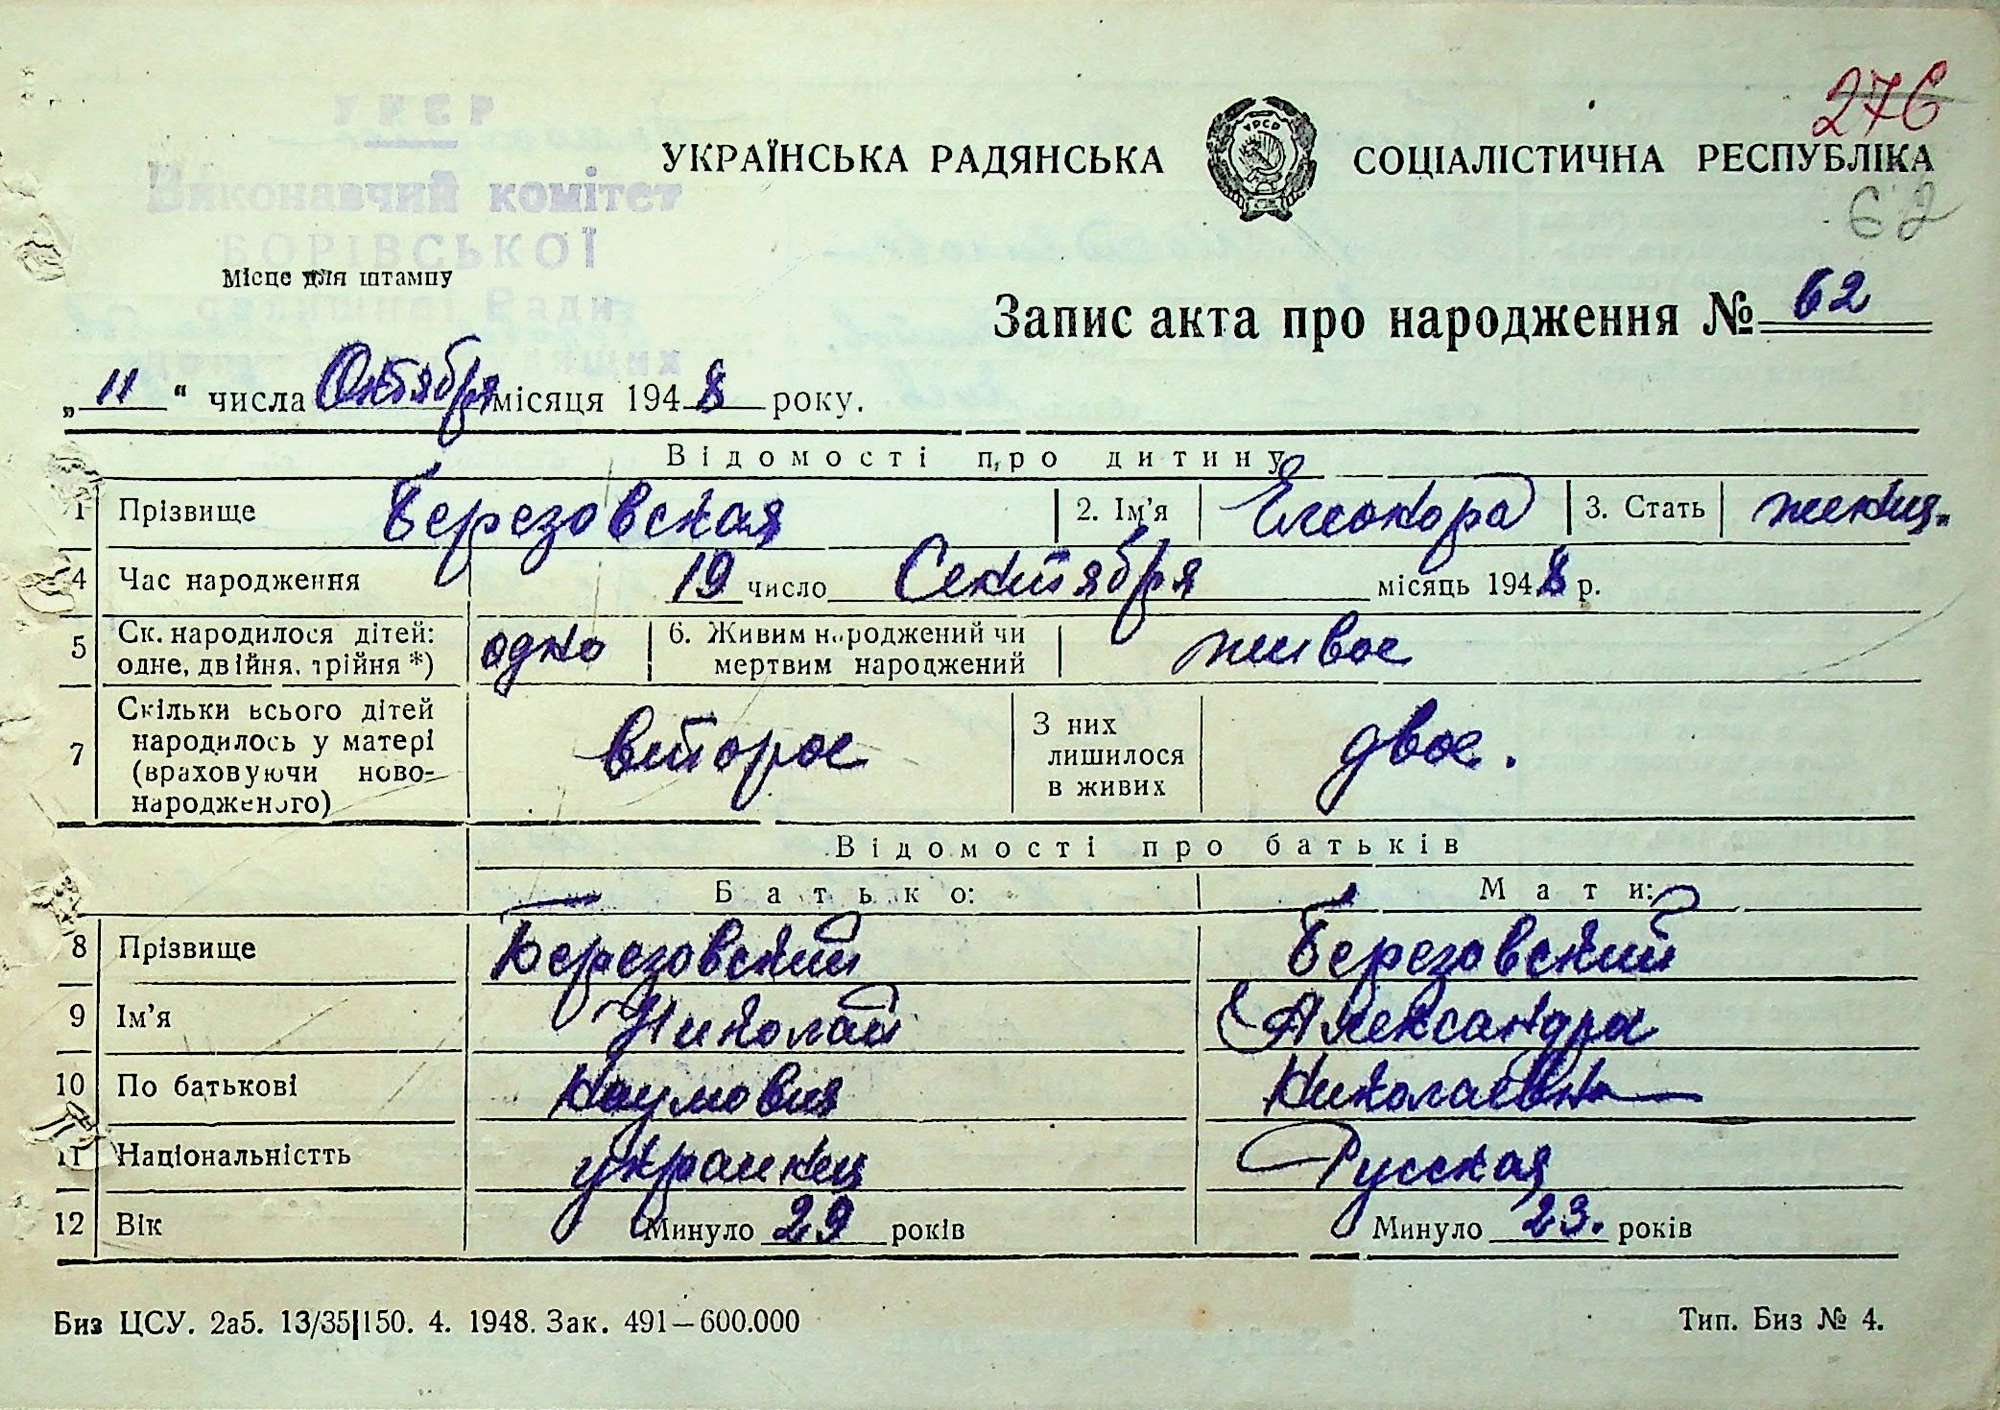 276
УРСР
УКРАЇНСЬКА РАДЯНСЬКА СОЦІАЛІСТИЧНА РЕСПУБЛІКА
УРСР
Виконавчий комітет
БОРІВСЬКОЇ
62
Місце для штампу
селищної Ради
Запис акта про народження № 62
„ 11 “ числа Октября місяця 1948 року.
Відомості про дитину
1 Прізвище Березовская 2. Ім'я Елеонора 3. Стать женщ.
4 Час народження 19 число Сентября місяць 1948 р.
5 Ск. народилося дітей: одно 6. Живим народжений чи живое
одне, двійня, трійня *) мертвим народжений
7 Скільки всього дітей народилось у матері (враховуючи ново-народженого) второе З них лишилося в живих двое.
Відомості про батьків
Батько: Мати:
8 Прізвище Березовский Березовский
9 Ім'я Николай Александра
10 По батькові Наумович Николаевна
11 Національністть украинец Русская
12 Вік Минуло 29 років Минуло 23. років
Биз ЦСУ. 2а5. 13/35|150. 4. 1948. Зак. 491—600.000 Тип. Биз № 4.